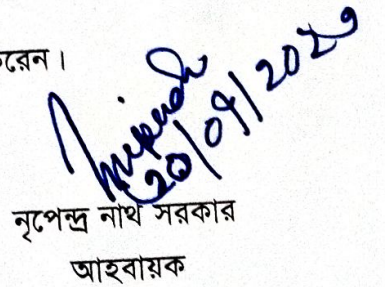 রেন।
20/09/2023
নৃপেন্দ্র নাথ সরকার
আহবায়ক